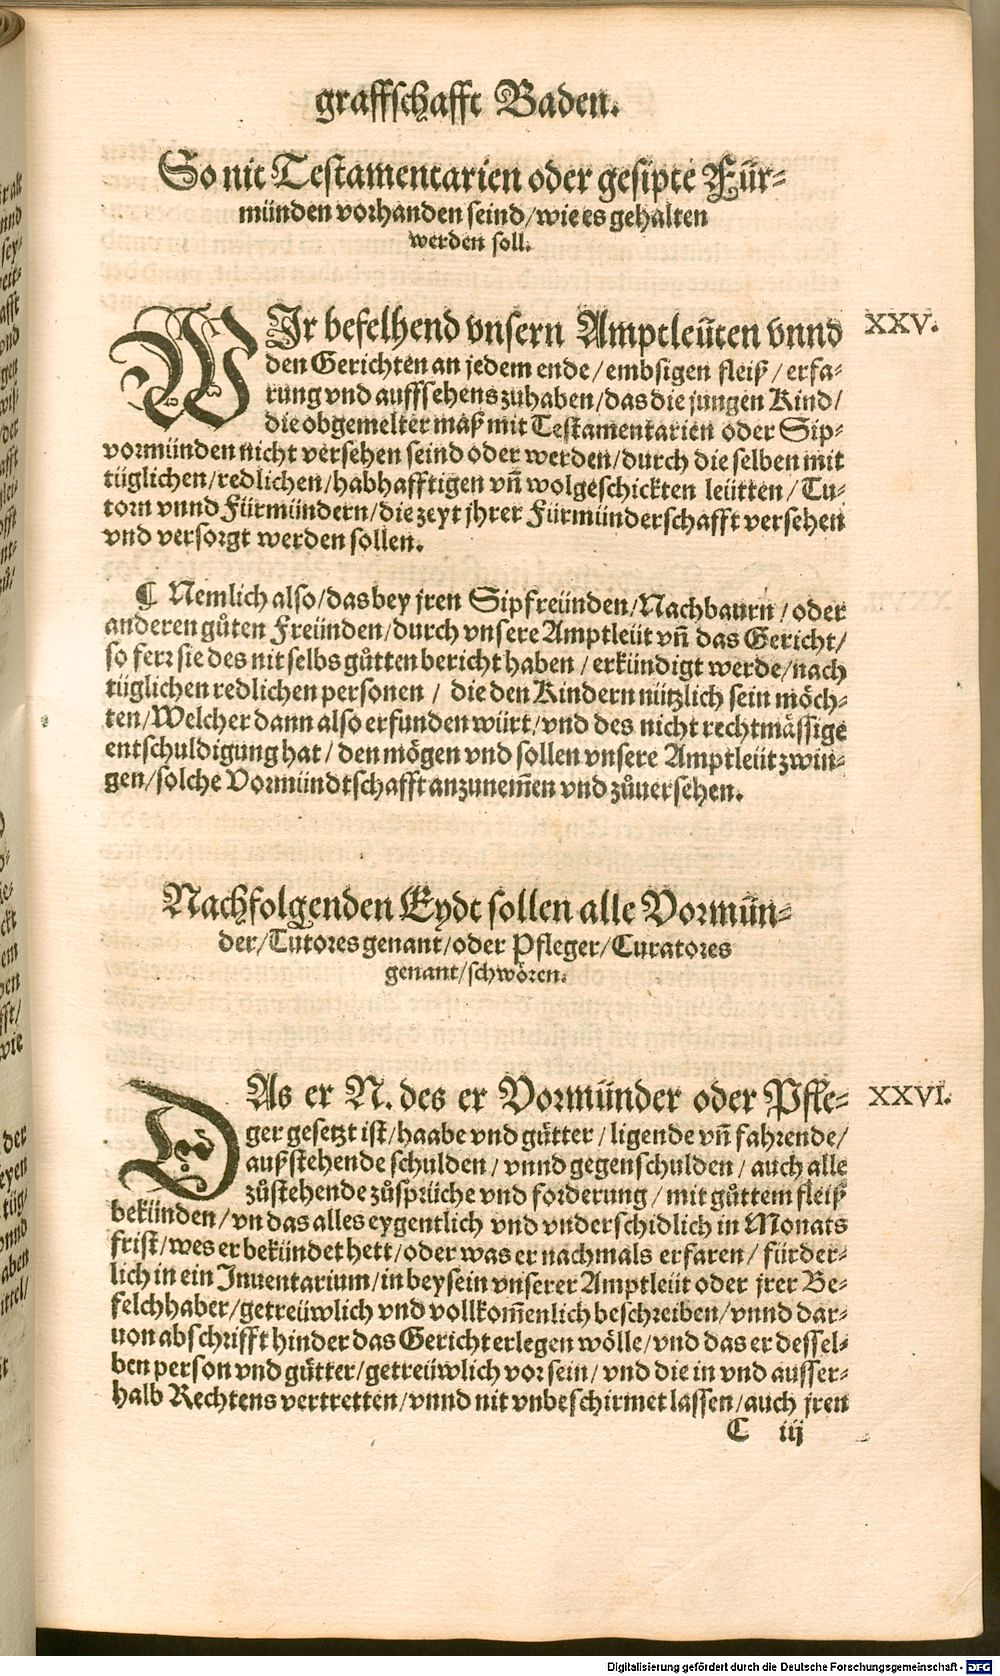 graffschafft Baden.
So nit Testamentarien oder gesipte Für-
münden vorhanden seind/wie es gehalten
werden soll.
WIr befelhend vnsern Amptleüten vnnd
XXV.
den Gerichten an jedem ende/embsigen fleiß/erfa-
rung vnd auffsehens zuhaben/das die jungen Kind/
die obgemelter maß mit Testamentarien oder Sip-
vormünden nicht versehen seind oder werden/durch die selben mit
tüglichen/redlichen/habhafftigen vñ wolgeschickten leütten/Tu-
torn vnnd Fürmündern/die zeyt jhrer Fürmünderschafft versehen
vnd versorgt werden sollen.
¶ Nemlich also/das bey jren Sipfreünden/Nachbaurn/oder
anderen gůten Freünden/durch vnsere Amptleüt vñ das Gericht/
so ferr sie des nit selbs gůtten bericht haben/erkündigt werde/nach
tüglichen redlichen personen/ die den Kindern nützlich sein möch-
ten/Welcher dann also erfunden würt/vnd des nicht rechtmässige
entschuldigung hat/den mögen vnd sollen vnsere Amptleüt zwin-
gen/solche Vormündtschafft anzunem̃en vnd zůuersehen.
Nachfolgenden Eydt sollen alle Vormün-
der/Tutores genant/oder Pfleger/Curatores
genant/schwören.
DAs er N. des er Vormünder oder Pfle-
XXVI.
ger gesetzt ist/haabe vnd gütter/ligende vñ fahrende/
außstehende schulden/vnnd gegenschulden/auch alle
zůstehende zůsprüche vnd forderung/mit gůttem fleiß
bekünden/vn das alles eygentlich vnd vnderschidlich in Monats
frist/wes er bekündet hett/oder was er nachmals erfaren/fürder-
lich in ein Inuentarium/in beysein vnserer Amptleüt oder jrer Be-
felchhaber/getreüwlich vnd vollkom̃enlich beschreiben/vnnd dar-
uon abschrifft hinder das Gericht erlegen wölle/vnd das er dessel-
ben person vnd gütter/getreüwlich vor sein/vnd die in vnd ausser-
halb Rechtens vertretten/vnnd nit vnbeschirmet lassen/auch jren
C iij
Digitalisierung gefördert durch die Deutsche Forschungsgemeinschaft - DFG